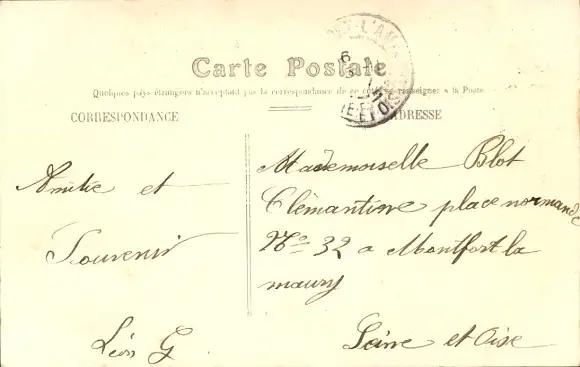 Carte Postale
Quelques pays étrangers n'acceptant pas la correspondance de ce côté, se renseigner à la Poste
CORRESPONDANCE
ADRESSE
Amitié et
Souvenir
Léon G
Mademoiselle Blot
Clémantine place normande
No 32 a Montfort la
maury
Seine et Oise